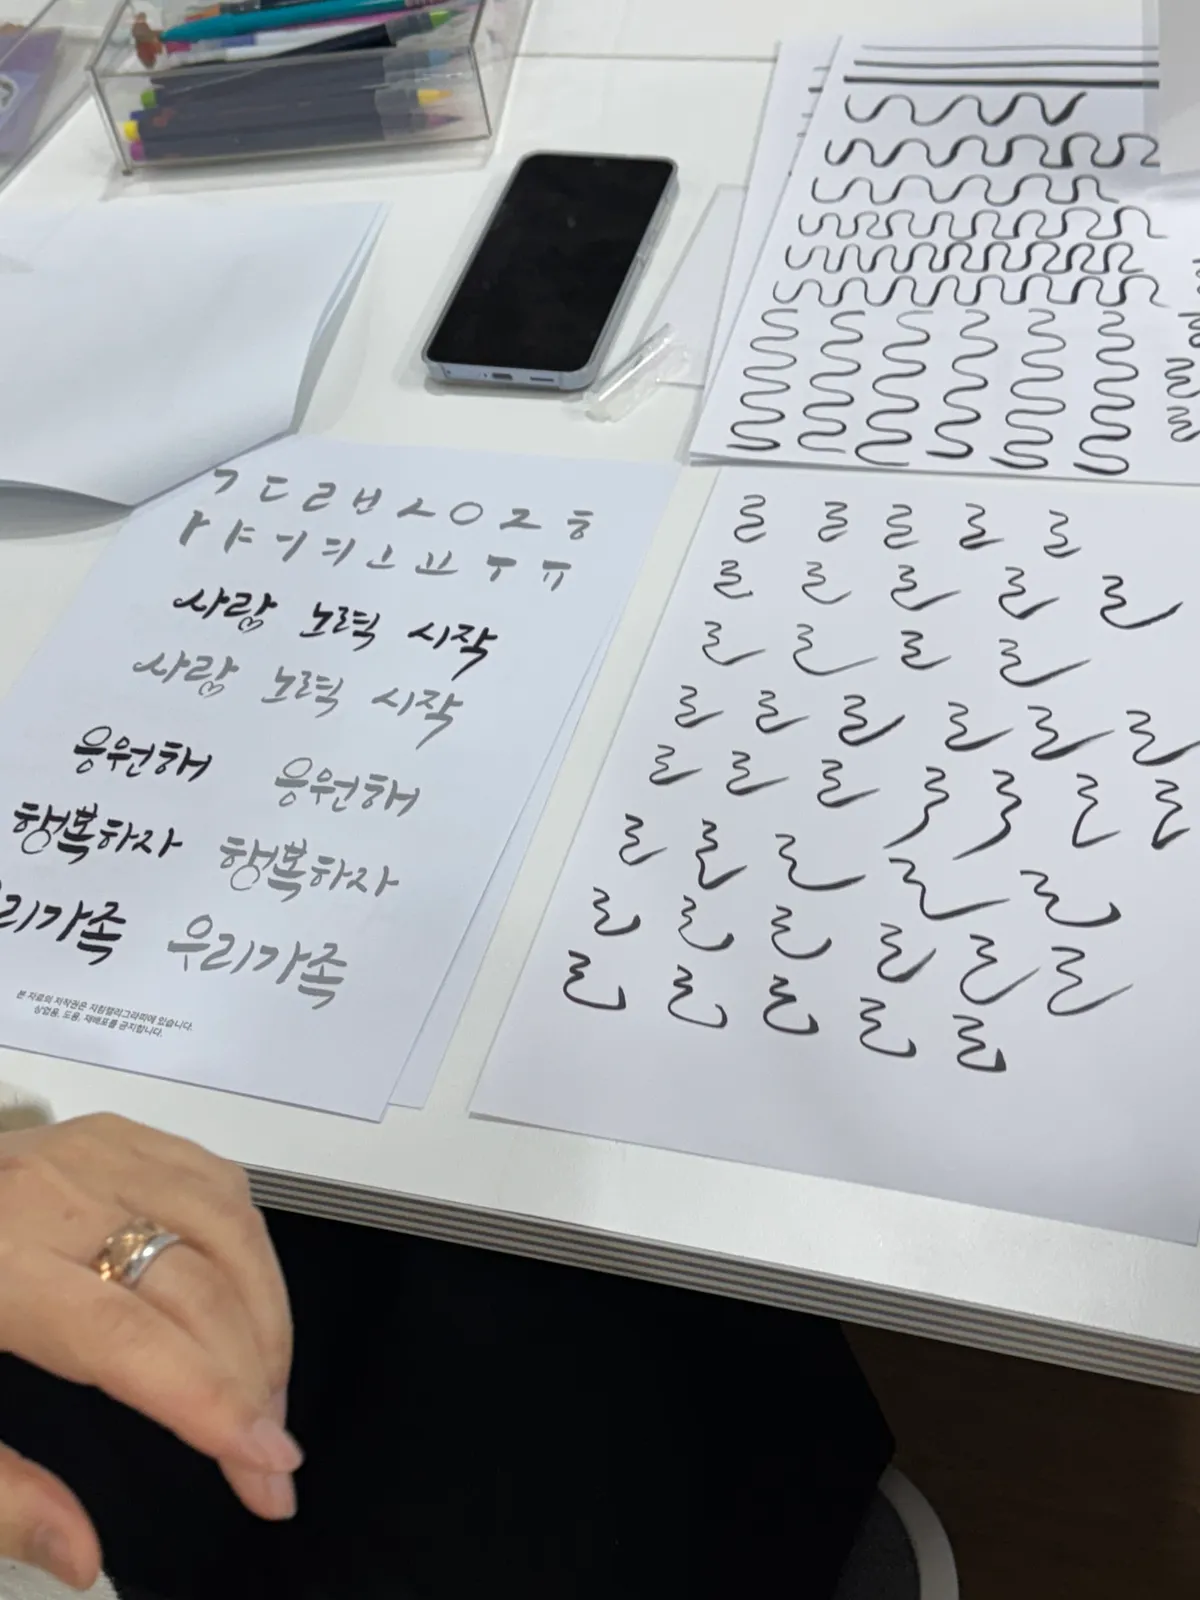 ㄱ ㄷ ㄹ ㅂ ㅅ ㅇ ㅈ ㅎ
ㅏ ㅑ ㅓ ㅕ ㅗ ㅛ ㅜ ㅠ
사랑 노력 시작
사랑 노력 시작
응원해 응원해
행복하자 행복하자
우리가족 우리가족
본 자료의 저작권은 지킴캘리그라피에 있습니다.
상업용, 도용, 재배포를 금지합니다.
ㄹ ㄹ ㄹ ㄹ ㄹ
ㄹ ㄹ ㄹ ㄹ ㄹ
ㄹ ㄹ ㄹ ㄹ
ㄹ ㄹ ㄹ ㄹ ㄹ ㄹ
ㄹ ㄹ ㄹ ㄹ ㄹ ㄹ ㄹ
ㄹ ㄹ ㄹ ㄹ ㄹ
ㄹ ㄹ ㄹ ㄹ ㄹ ㄹ
ㄹ ㄹ ㄹ ㄹ ㄹ